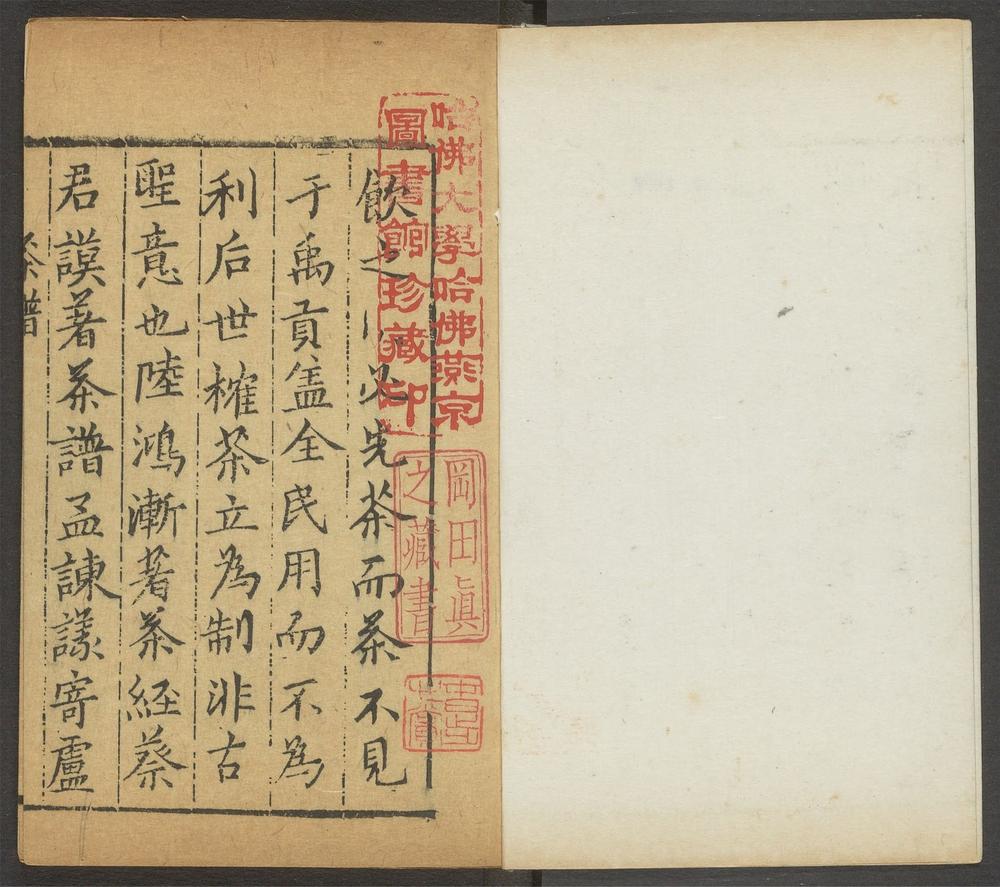 飲之□必先茶而茶不見
于禹貢盖全民用而不為
利后世榷茶立為制非古
聖意也陸鴻漸著茶經蔡
君謨著茶譜孟諫議寄盧
茶譜
哈佛大學哈佛燕京
圖書館珍藏印
岡田眞
之藏書